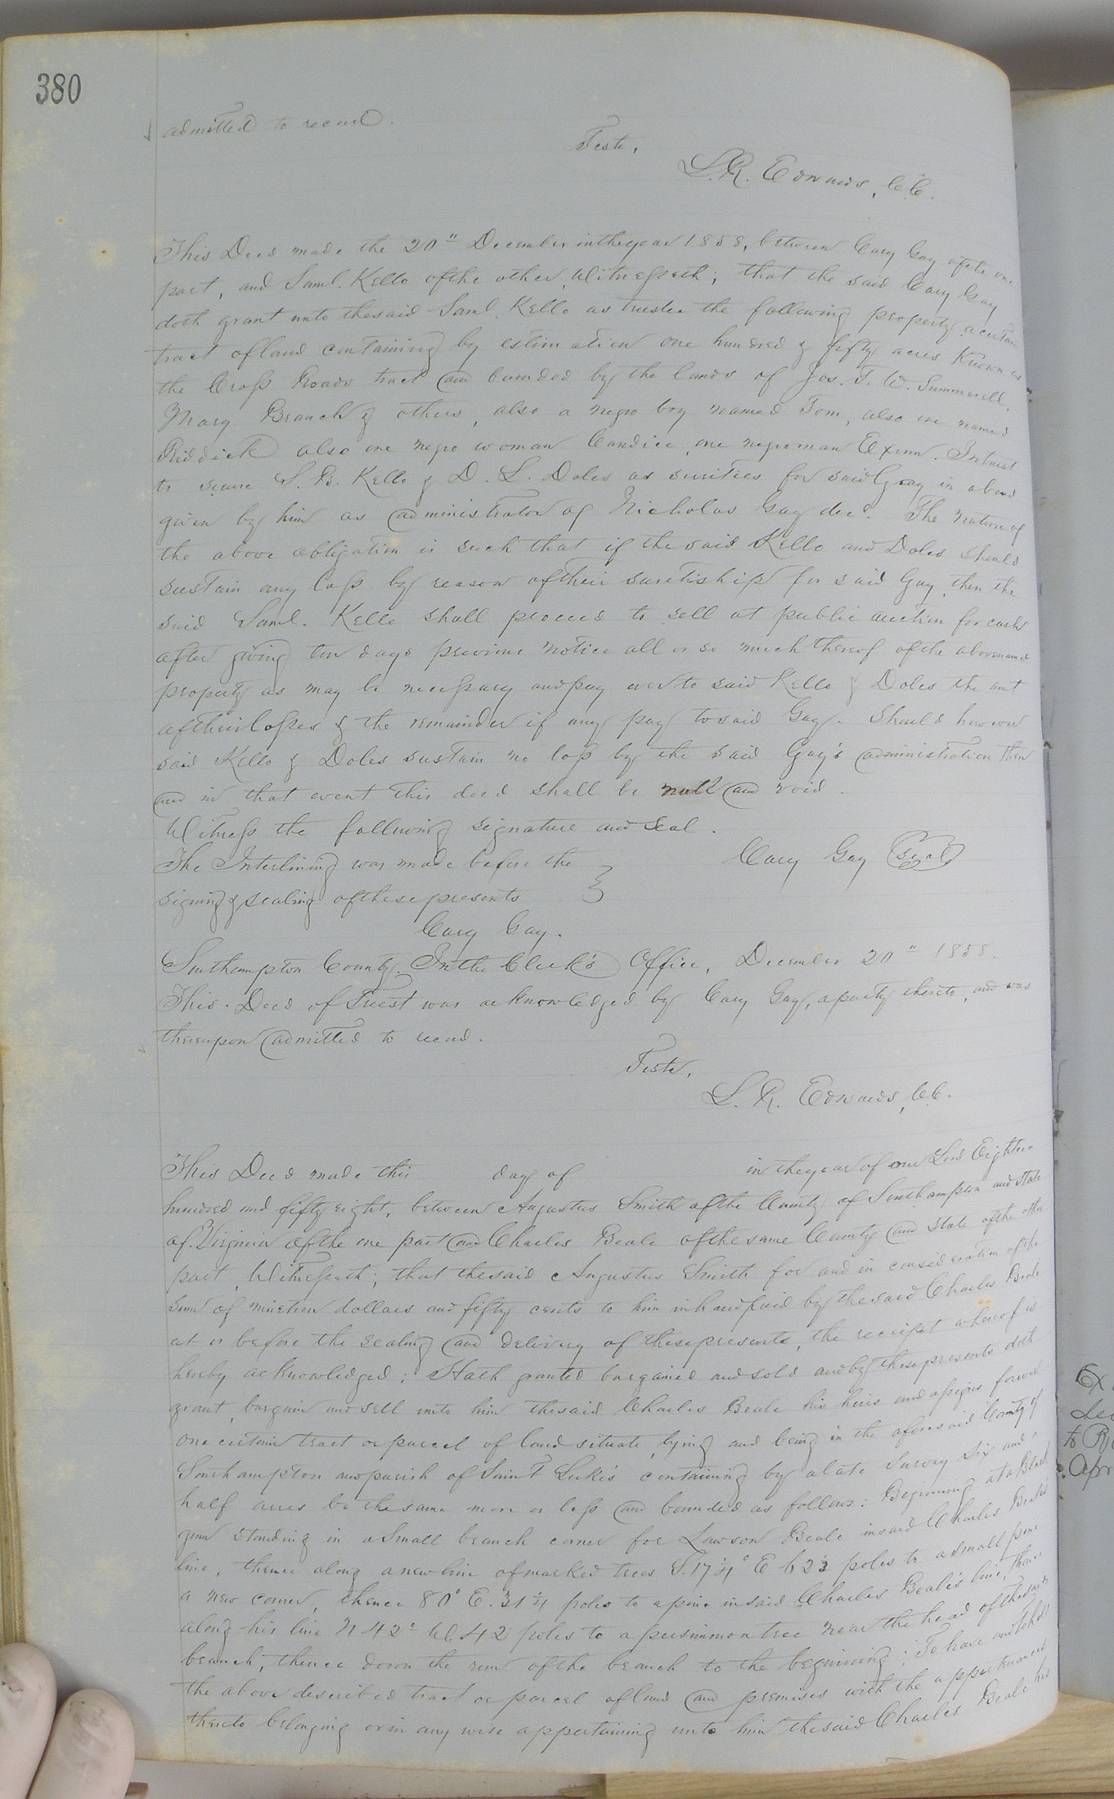 380
admitted to record.
Teste,
L. R. Edwards, C.C.
This Deed made the 20th December in the year 1858, between Cary Gay of the one
part, and Saml. Kello of the other, Witnesseth; that the said Cary Gay
doth grant unto the said Saml. Kello as trustee the following property a certain
tract of land containing by estimation one hundred & fifty acres Known as
the Cross Roads tract and bounded by the lands of Jos. T. W. Summerell.
Mary Branch & others, also a negro boy named Tom, also one named
Riddick also one negro woman Candice, one negro man Exum. In trust
to secure S. B. Kello & D. L. Doles as surities for said Gay in a bond
given by him as administrator of Nicholas Gay decd. The nature of
the above obligation is such that if the said Kello and Doles should
sustain any loss by reason of their suretiship for said Gay, then the
said Saml. Kello shall proceed to sell at public auction for cash
after giving ten days previous notice all or so much thereof of the above named
property as may be necessary and pay over to said Kello & Doles the amt
of their losses & the remainder if any pay to said Gay. Should however
said Kello & Doles sustain no loss by the said Gay's administration then
and in that event this deed shall be null and void.
Witness the following signature and seal.
The Interlining was made before the
Cary Gay (Seal)
signing & sealing of these presents
Cary Gay.
Southampton County. In the Clerk's Office, December 20th 1858.
This Deed of Trust was acknowledged by Cary Gay, a party thereto, and was
thereupon admitted to record.
Teste,
L. R. Edwards, C.C.
This Deed made this day of in the year of our Lord Eighteen
hundred and fifty eight, between Augustus Smith of the County of Southampton and State
of Virginia of the one part and Charles Beale of the same County and State of the other
part, Witnesseth; that the said Augustus Smith for and in consideration of the
sum of nineteen dollars and fifty cents to him in hand paid by the said Charles Beale
at or before the sealing and delivery of these presents, the receipt whereof is
hereby acknowledged; Hath granted bargained and sold and by these presents doth
grant, bargain and sell unto him the said Charles Beale his heirs and assigns forever
one certain tract or parcel of land situate, lying and being in the aforesaid County of
Southampton and parish of Saint Luke's containing by a late survey six and a
half acres be the same more or less and bounded as follows: Beginning at a Black
gum standing in a small branch corner for Lawson Beale in said Charles Beale's
line, thence along a new line of marked trees S. 17¼° E poles to a small pine
a new corner, thence 80° E. 31¼ poles to a pine in said Charles Beale's line, thence
along his line N 42° W. 42 poles to a persimmon tree near the head of the said
branch; thence down the run of the branch to the beginning: To have and to hold
the above described tract or parcel of land and premises with the appurtenances
thereto belonging or in any wise appertaining unto him the said Charles Beale his
Ex
to
Apr